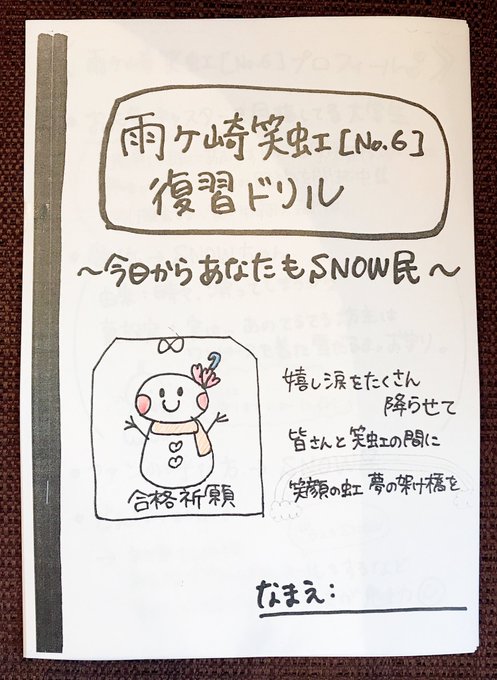 雨ヶ崎笑虹[No.6]
復習ドリル
～今日からあなたもSNOW民～
嬉し涙をたくさん
降らせて
皆さんと笑虹の間に
笑顔の虹 夢の架け橋を
合格祈願
なまえ: